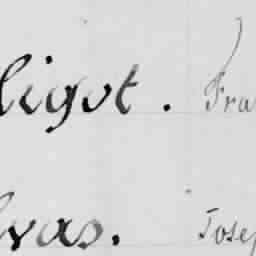 ligot. Fra
vas. Josep